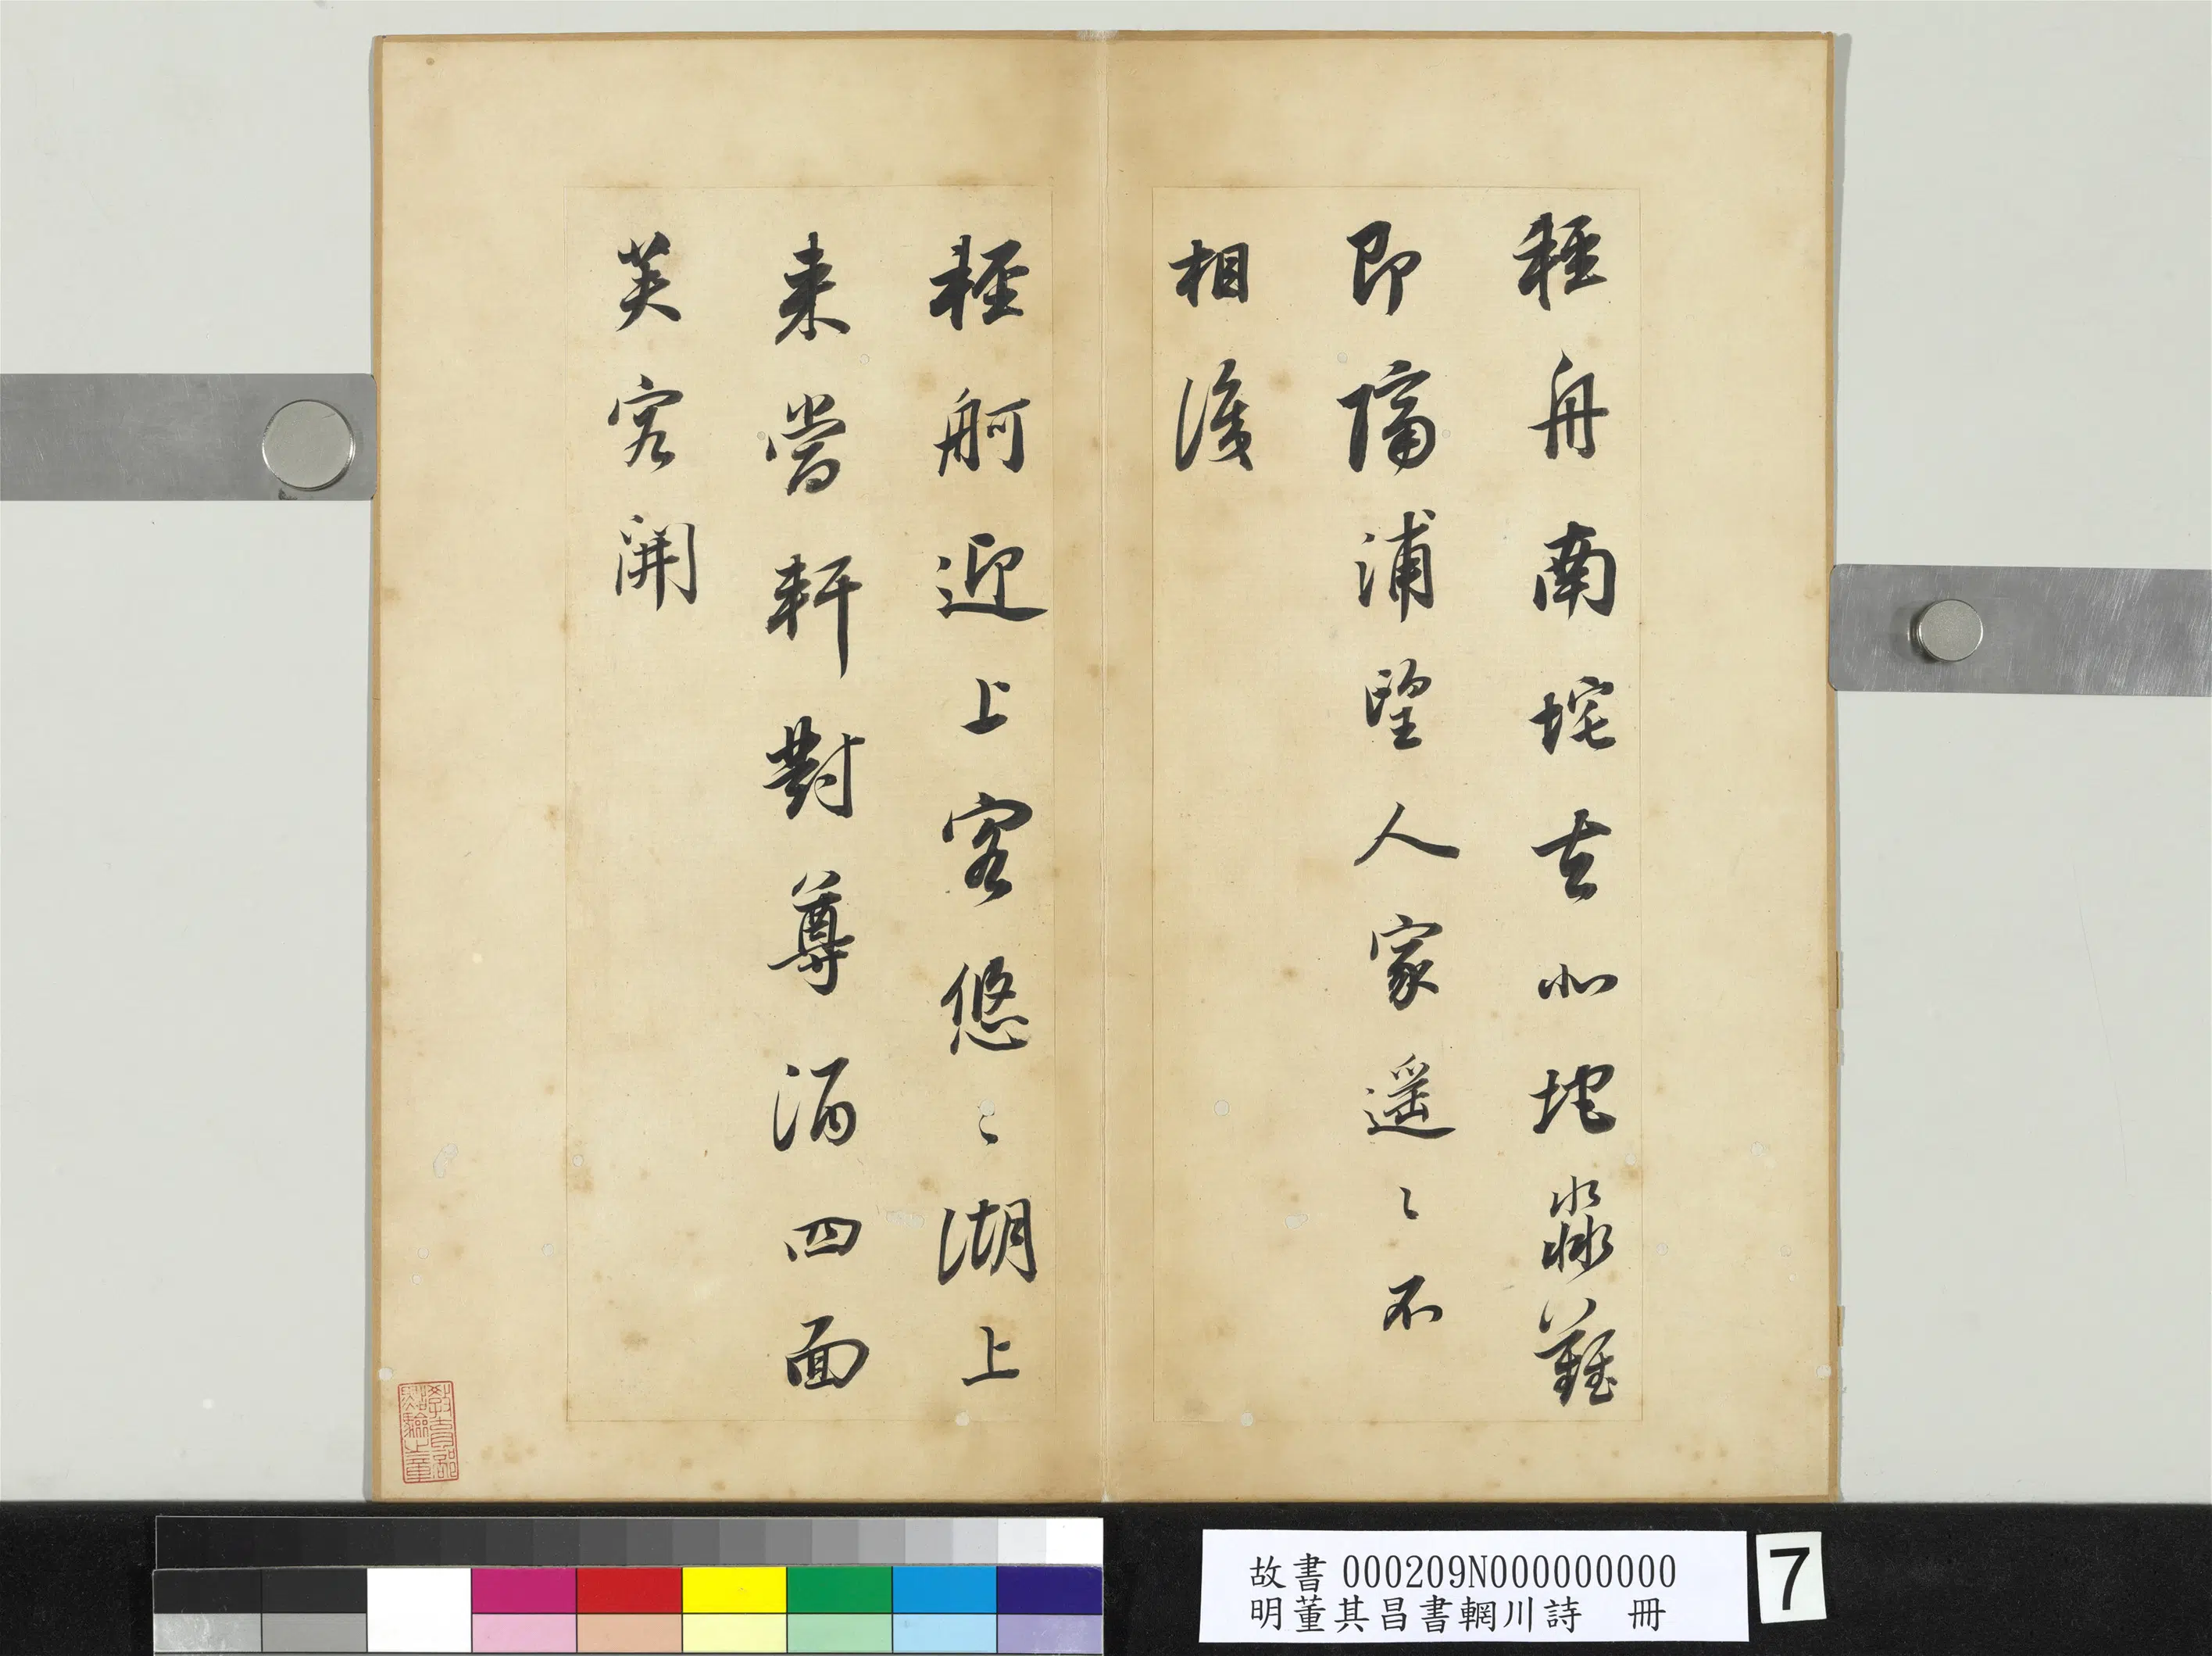 輕舟南垞去北垞淼難
即隔浦望人家遙〻不
相識
輕舸迎上客悠〻湖上
来當軒對尊酒四面
芙容開
教育部
點驗之章
故書 000209N000000000
明董其昌書輞川詩　冊
7